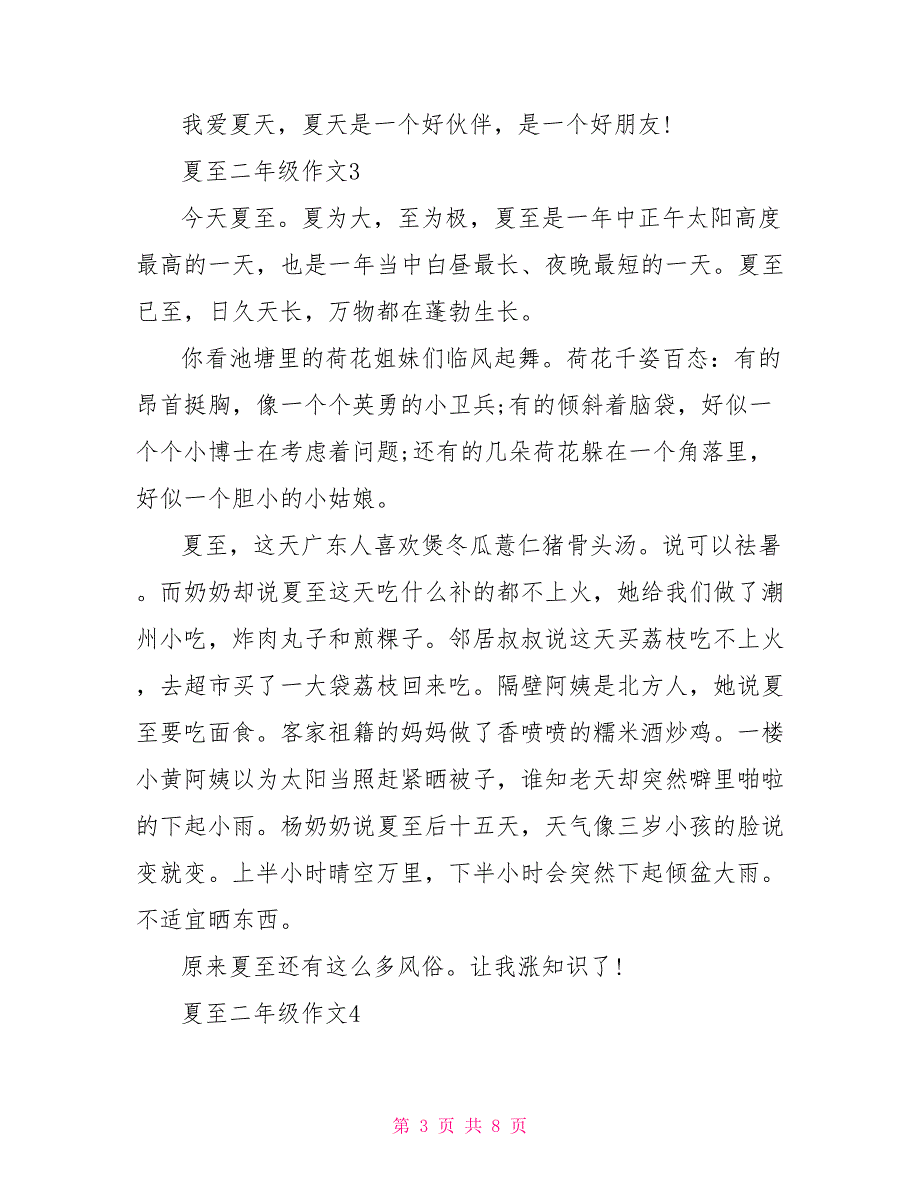 我爱夏天，夏天是一个好伙伴，是一个好朋友!
夏至二年级作文3
今天夏至。夏为大，至为极，夏至是一年中正午太阳高度
最高的一天，也是一年当中白昼最长、夜晚最短的一天。夏至
已至，日久天长，万物都在蓬勃生长。
你看池塘里的荷花姐妹们临风起舞。荷花千姿百态：有的
昂首挺胸，像一个个英勇的小卫兵;有的倾斜着脑袋，好似一
个个小博士在考虑着问题;还有的几朵荷花躲在一个角落里，
好似一个胆小的小姑娘。
夏至，这天广东人喜欢煲冬瓜薏仁猪骨头汤。说可以祛暑
。而奶奶却说夏至这天吃什么补的都不上火，她给我们做了潮
州小吃，炸肉丸子和煎粿子。邻居叔叔说这天买荔枝吃不上火
，去超市买了一大袋荔枝回来吃。隔壁阿姨是北方人，她说夏
至要吃面食。客家祖籍的妈妈做了香喷喷的糯米酒炒鸡。一楼
小黄阿姨以为太阳当照赶紧晒被子，谁知老天却突然噼里啪啦
的下起小雨。杨奶奶说夏至后十五天，天气像三岁小孩的脸说
变就变。上半小时晴空万里，下半小时会突然下起倾盆大雨。
不适宜晒东西。
原来夏至还有这么多风俗。让我涨知识了!
夏至二年级作文4
第 3 页 共 8 页